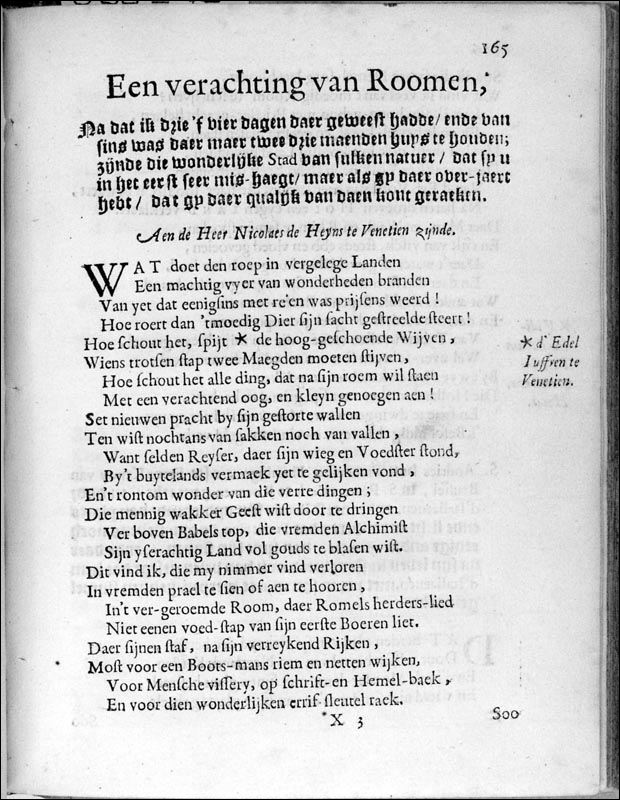 165
Een verachting van Roomen,
Na dat ik drie 'f vier dagen daer geweest hadde / ende van
sins was daer maer twee drie maenden huys te houden;
zijnde die wonderlijke Stad van sulken natuer / dat sy u
in het eerst seer mis-haegt / maer als gy daer over-jaert
hebt / dat gy daer qualijk van daen kont geraeken.
Aen de Heer Nicolaes de Heyns te Venetien zijnde.
WAT doet den roep in vergelege Landen
Een machtig vyer van wonderheden branden
Van yet dat eenigsins met re'en was prijsens weerd !
Hoe roert dan 'tmoedig Dier sijn sacht gestreelde steert !
Hoe schout het, spijt * de hoog-geschoende Wijven ,
Wiens trotsen stap twee Maegden moeten stijven ,
Hoe schout het alle ding, dat na sijn roem wil staen
Met een verachtend oog, en kleyn genoegen aen !
Set nieuwen pracht by sijn gestorte wallen
Ten wist nochtans van sakken noch van vallen ,
Want selden Reyser, daer sijn wieg en Voedster stond,
By't buytelands vermaek yet te gelijken vond ,
En't rontom wonder van die verre dingen ;
Die mennig wakker Geest wist door te dringen
Ver boven Babels top, die vremden Alchimist
Sijn yserachtig Land vol gouds te blasen wist.
Dit vind ik, die my nimmer vind verloren
In vremden prael te sien of aen te hooren ,
In't ver-geroemde Room, daer Romels herders-lied
Niet eenen voed-stap van sijn eerste Boeren liet.
Daer sijnen staf, na sijn verreykend Rijken ,
Most voor een Boots-mans riem en netten wijken,
Voor Mensche vissery, op schrift-en Hemel-baek ,
En voor dien wonderlijken errif-sleutel raek.
* d' Edel
Iuffren te
Venetien.
X 3
Soo